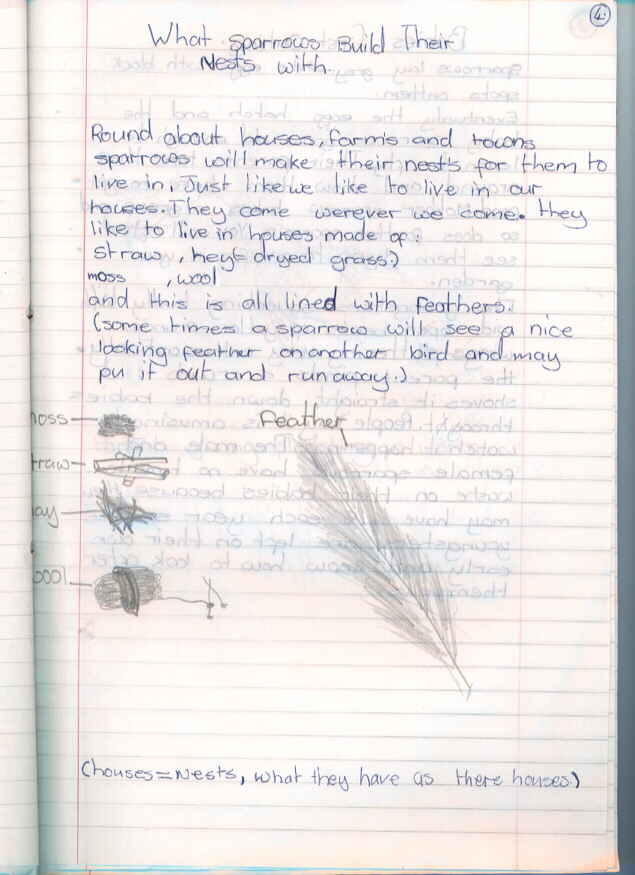 4.
What Sparrows Build Their
Nests with.
Round about houses, farms and towns
sparrows will make their nests for them to
live in. Just like we like to live in our
houses. They come werever we come. they
like to live in houses made of:
straw, hey(= dryed grass)
moss , wool
and this is all lined with feathers.
(some times a sparrow will see a nice
looking feather on another bird and may
pu it out and run away.)
moss
Feather
traw
ay
ool
(houses=Nests, what they have as there houses.)